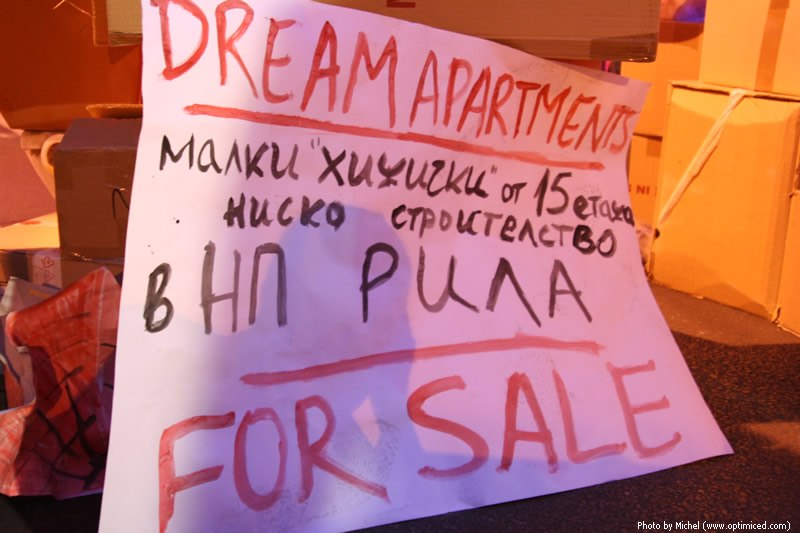 DREAM APARTMENTS
малки "хижички" от 15 етажа
ниско строителство
в НП РИЛА
FOR SALE
Photo by Michel (www.optimiced.com)